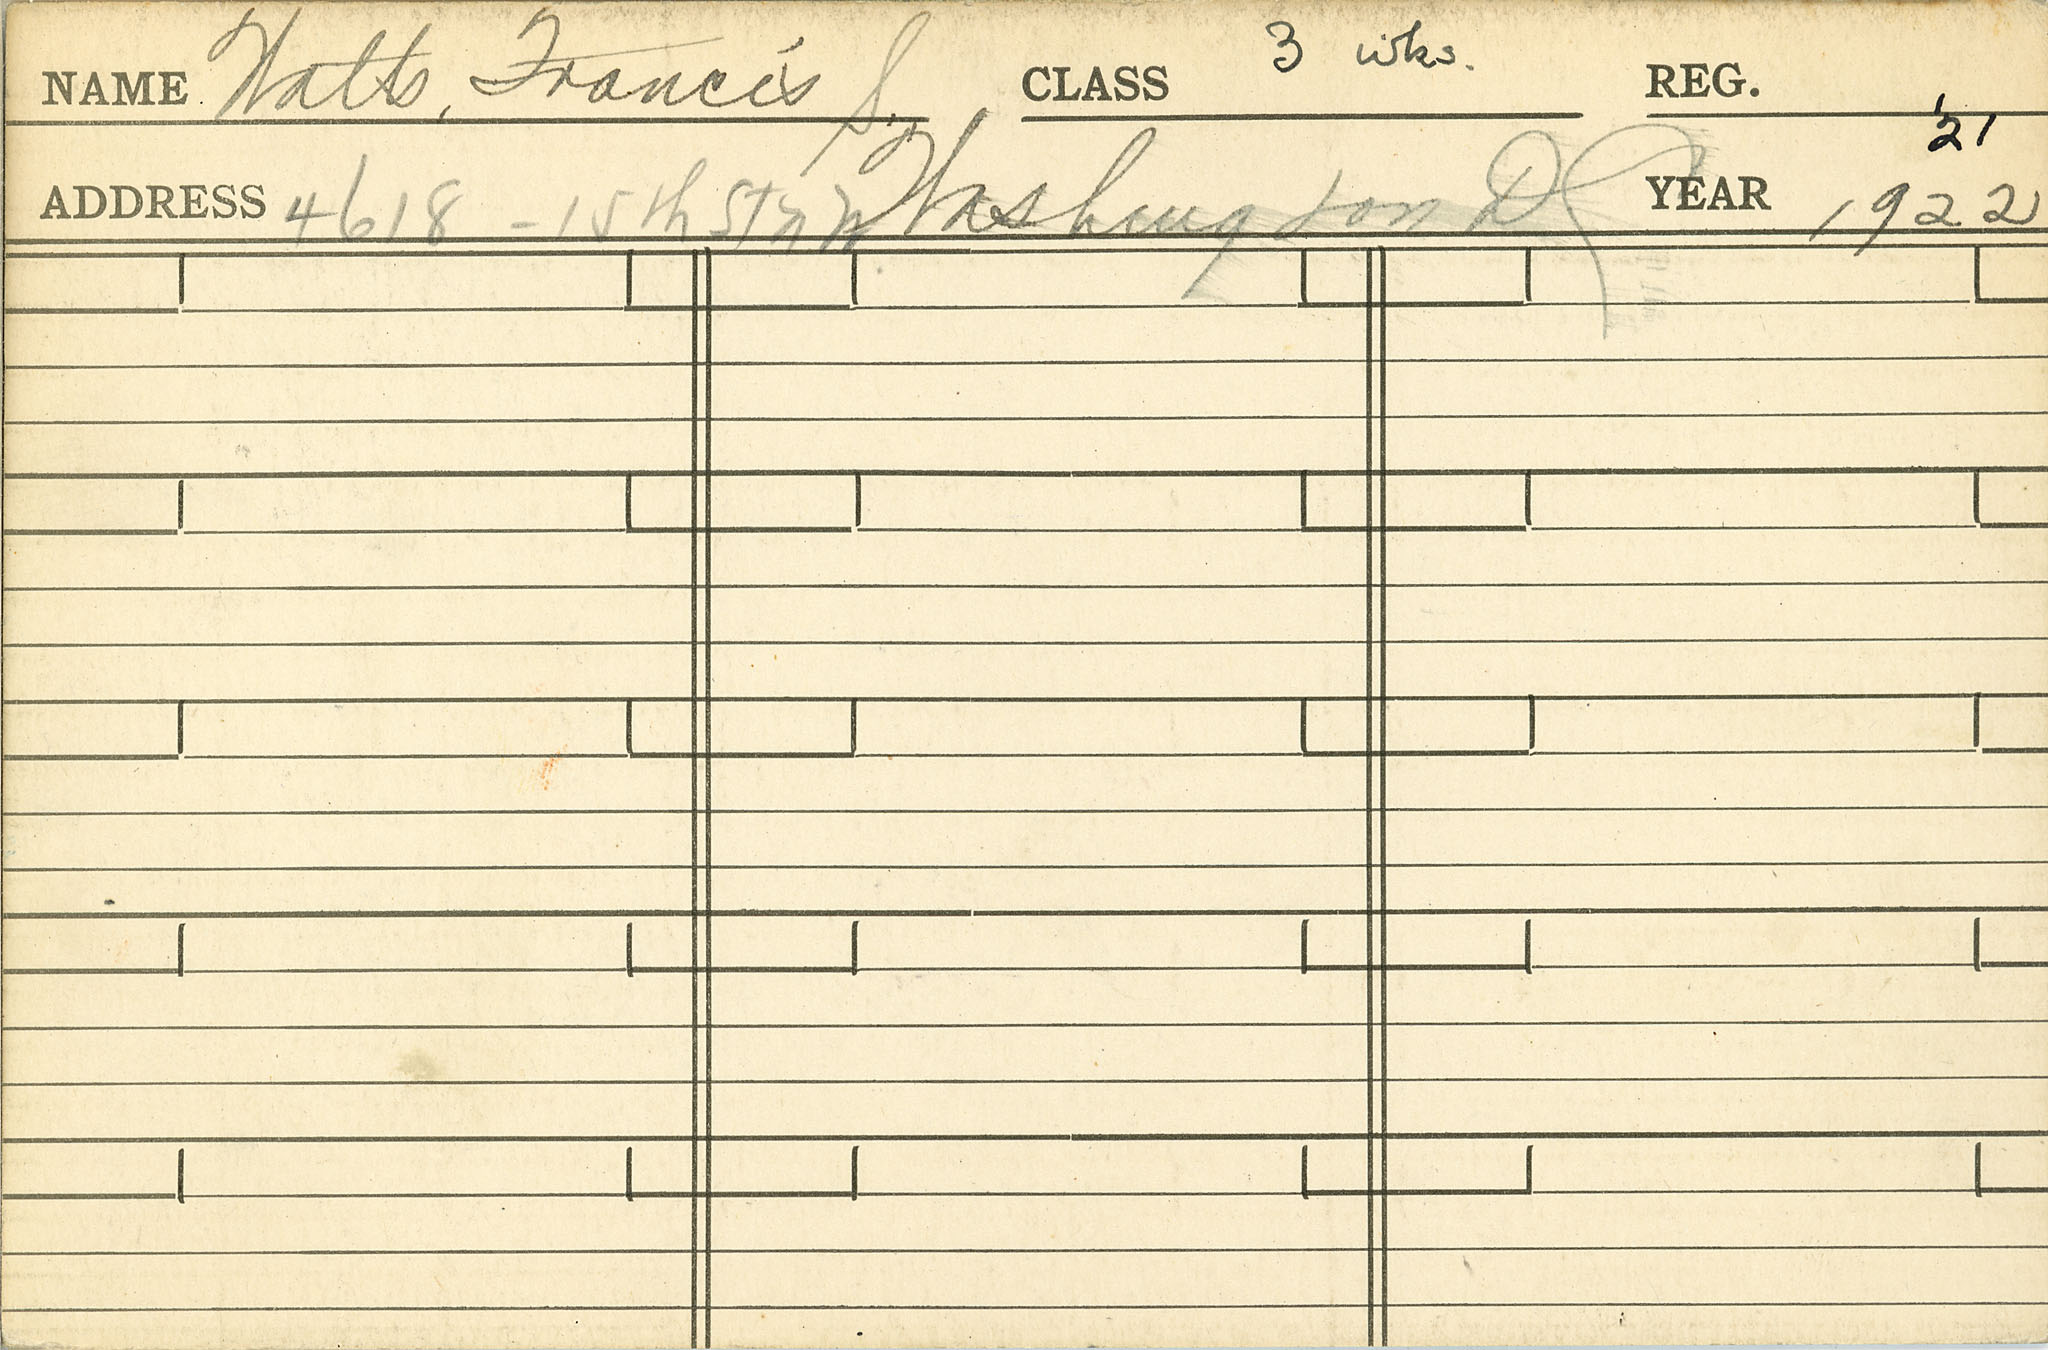 NAME Watts, Francis S. CLASS 3 wks. REG.
'21
ADDRESS 4618 - 15th St NW Washington DC YEAR 1922